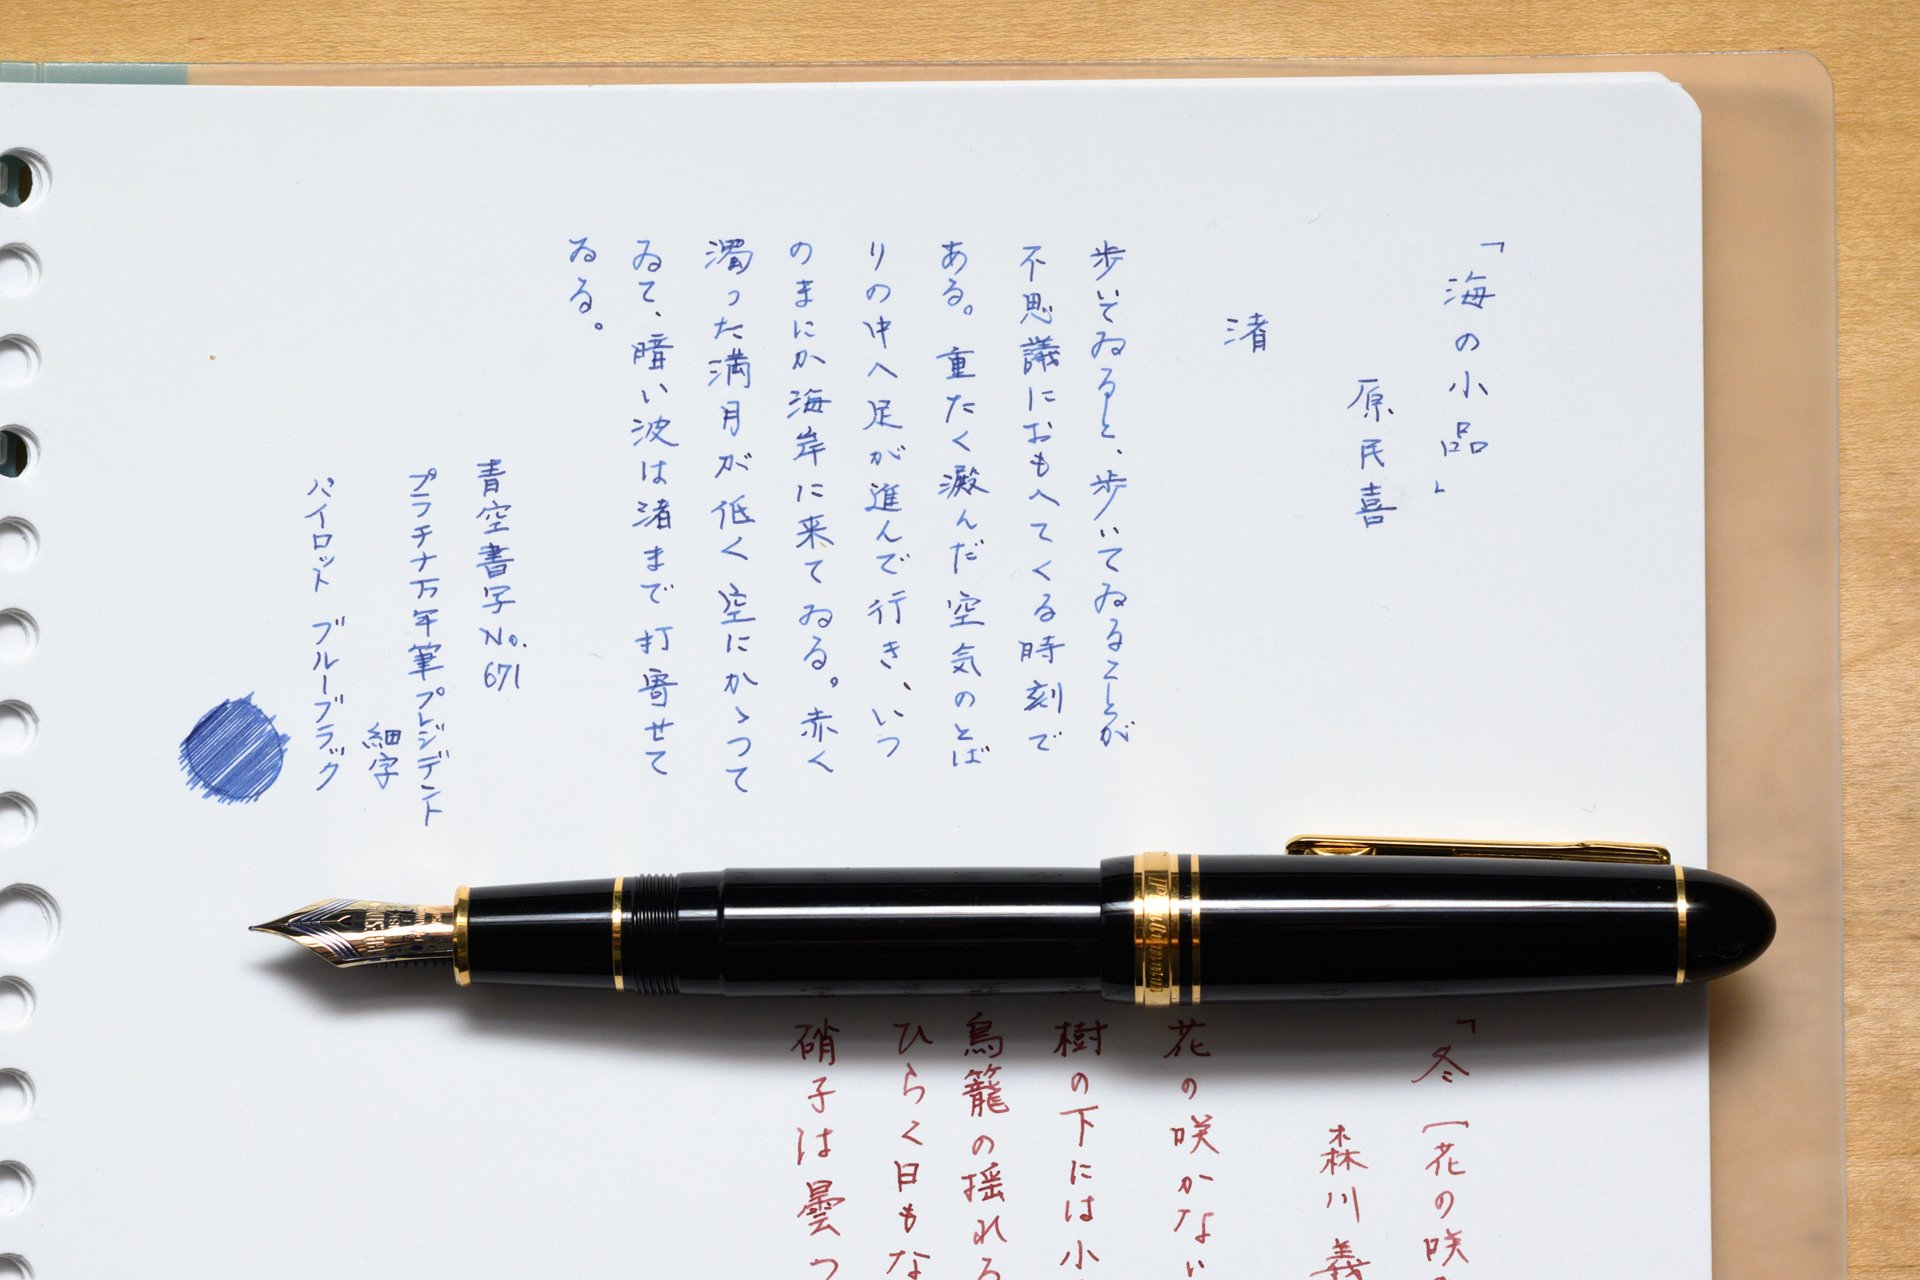 「海の小品」
原民喜
渚
歩いてゐると、歩いてゐることが
不思議におもへてくる時刻で
ある。重たく澱んだ空気のとば
りの中へ足が進んで行き、いつ
のまにか海岸に来てゐる。赤く
濁った満月が低く空にかゝって
ゐて、暗い波は渚まで打寄せて
ゐる。
青空書写No.671
プラチナ万年筆プレジデント
細字
パイロット ブルーブラック
「冬〔花の咲
森川義
花の咲かない
樹の下には小
鳥籠の揺れる
ひらく日もな
硝子は曇つ